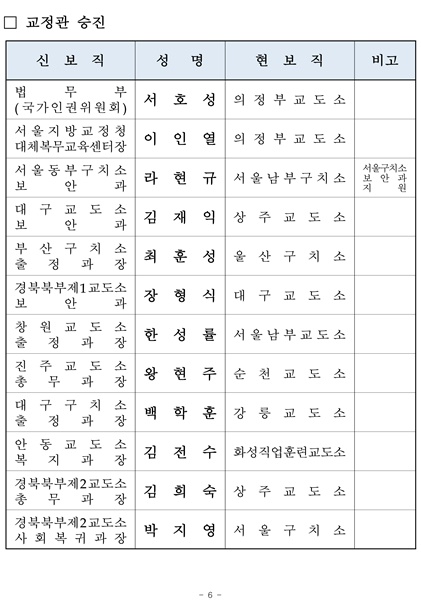 □ 교정관 승진
신 보 직 성 명 현 보 직 비고
법 무 부
(국가인권위원회) 서 호 성 의 정 부 교 도 소
서 울 지 방 교 정 청
대체복무교육센터장 이 인 열 의 정 부 교 도 소
서 울 동 부 구 치 소
보 안 과 라 현 규 서 울 남 부 구 치 소 서울구치소
보 안 과
지 원
대 구 교 도 소
보 안 과 김 재 익 상 주 교 도 소
부 산 구 치 소
출 정 과 장 최 훈 성 울 산 구 치 소
경북북부제1교도소
보 안 과 장 형 식 대 구 교 도 소
창 원 교 도 소
출 정 과 장 한 성 률 서 울 남 부 교 도 소
진 주 교 도 소
총 무 과 장 왕 현 주 순 천 교 도 소
대 구 구 치 소
출 정 과 장 백 학 훈 강 릉 교 도 소
안 동 교 도 소
복 지 과 장 김 전 수 화성직업훈련교도소
경북북부제2교도소
총 무 과 장 김 희 숙 상 주 교 도 소
경북북부제2교도소
사 회 복 귀 과 장 박 지 영 서 울 구 치 소
- 6 -